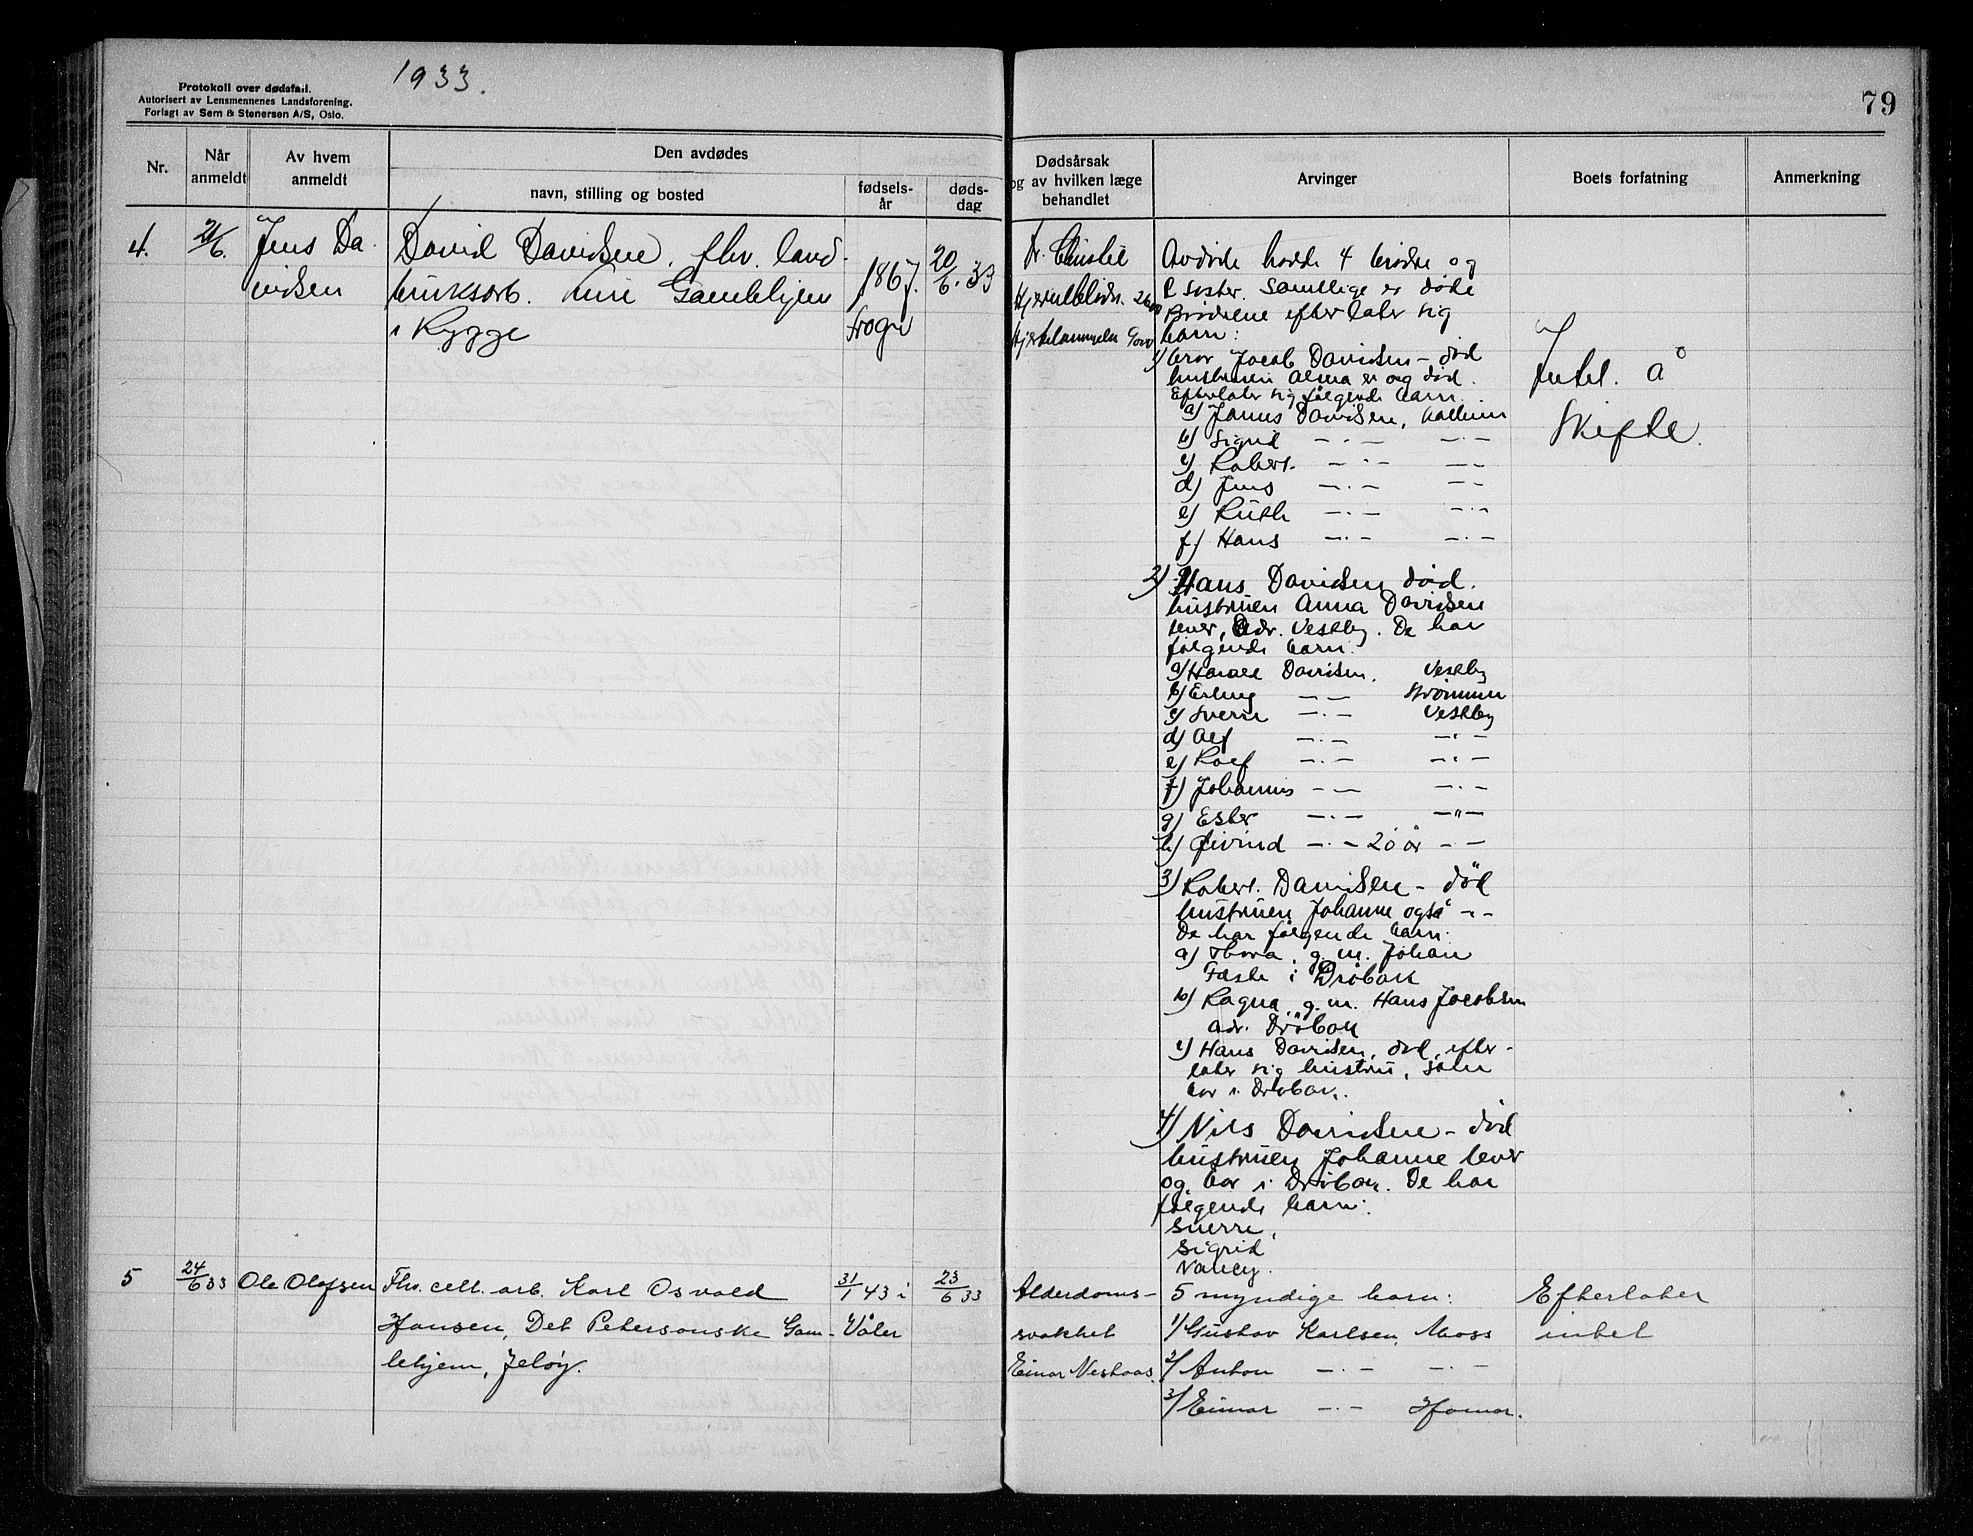 1933.
Protokoll over dødsfall.
Autorisert av Lensmennenes Landsforening.
Forlagt av Sem & Stenersen A/S, Oslo.
79
Nr.
Når
anmeldt
Av hvem
anmeldt
Den avdødes
navn, stilling og bosted
fødsels-
år
døds-
dag
Dødsårsak
og av hvilken læge
behandlet
Arvinger
Boets forfatning
Anmerkning
4.
21/6.
Jens Da-
vidsen
David Davidsen, fhv. land-
bruksarb. Gamlehjem
i Rygge
1867.
Frogn
20/6.33
Dr.
Avdøde hadde 4 brødre og
1 søster. Samtlige er døde
Brødrene efterlater sig
barn:
1) bror Jacob Davidsen - død
hustruen Alma er og død.
Efterlater sig følgende barn.
a) Davidsen,
b) Sigrid -.- -.-
c) Robert -.- --
d) Jens -.- --
e) Ruth -.- -.-
f) Hans -.- -.-
Intet å
skifte.
2) Hans Davidsen død.
hustruen Anna Davidsen
lever, adr. Vestby. De har
følgende barn.
a) Harald Davidsen, Vestby
b) Erling -- Strømmen
c) Sverre -.- Vestby
d) Alf -.- -.-
e) Rolf -.- -.-
f) Johannes -.- -.-
g) Ester -.- -"-
h) Øivind -.- 20 år --
3) Robert Davidsen - død
hustruen Johanne også --
De har følgende barn.
a) Thora, g. m. Johan
Fæste i Drøbak
b) Ragna, g. m. Hans Jacobsen
adr. Drøbak
c) Hans Davidsen, død, efter-
later sig hustru, som
bor i Drøbak.
4) Nils Davidsen - død
hustruen Johanne lever
og bor i Drøbak. De har
følgende barn:
Sverre,
Sigrid
Nancy.
5
24/6 33
Ole Olafsen
Fhv. cell. arb. Karl Osvald
Hansen, Det Petersonske Gam-
lehjem, Jeløy.
31/1 43 i
Våler
23/6 33
Alderdoms-
svakhet
Einar Neshaas.
5 myndige barn:
1/ Gustav Karlsen, Moss
2/ Anton -.- -.-
3/ Einar -.- Hamar.
Efterlater
intet